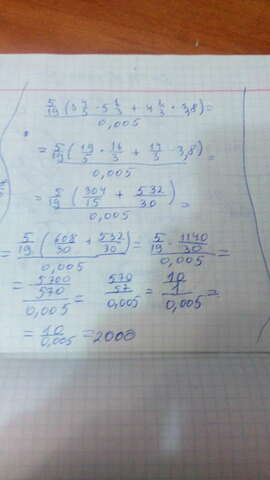 5/19 (3 4/5 · 5 1/3 + 4 2/3 · 3,8) / 0,005 =
= 5/19 (19/5 · 16/3 + 14/3 · 3,8) / 0,005 =
= 5/19 (304/15 + 532/30) / 0,005 =
= 5/19 (608/30 + 532/30) / 0,005 = 5/19 · 1140/30 / 0,005 =
= 5700/570 / 0,005 = 570/57 / 0,005 = 10/1 / 0,005 =
= 10/0,005 = 2000